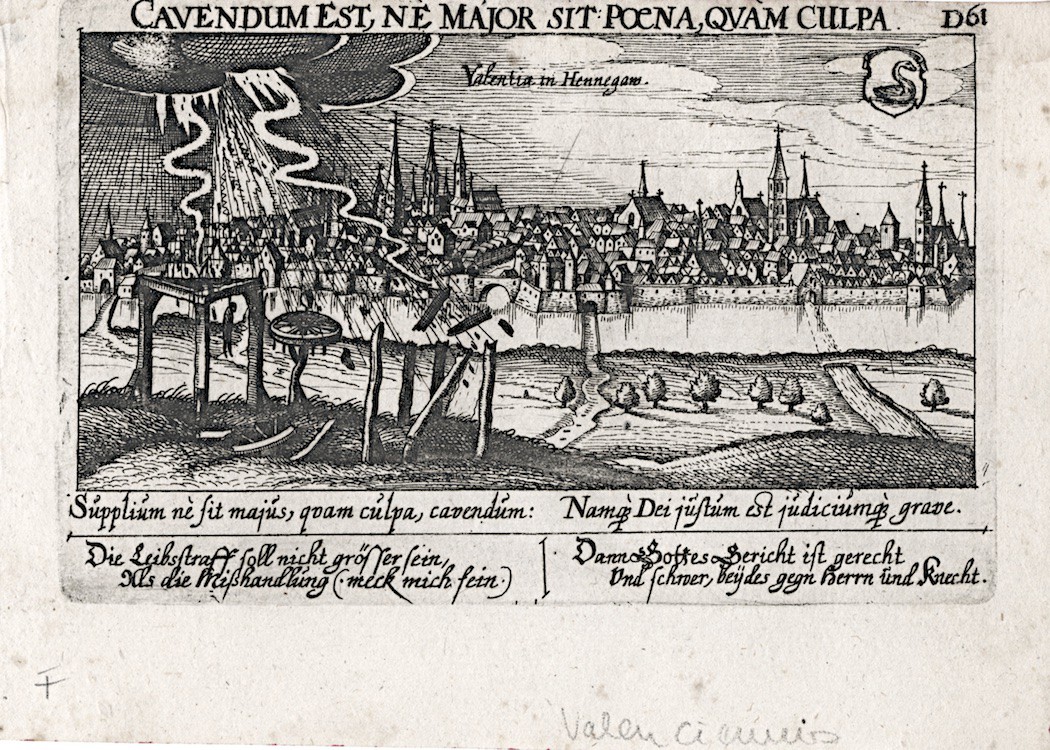 CAVENDUM EST, NÈ MAJOR SIT POENA, QVÀM CULPA. D61
Valentiæ in Hennegaw.
Supplium nè sit majus, qvam culpa, cavendum: Namq́; Dei justum est judiciumq́; grave.
Die Leibsstraff soll nicht grösser sein,
Als die Mißhandlung (meck mich fein)
Dann Gottes Gericht ist gerecht
Und schwer, beÿdes gegn Herrn und Knecht.
F